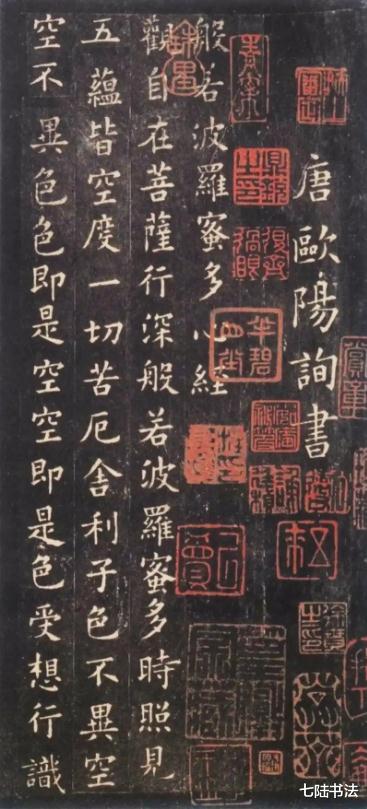 唐歐陽詢書
般若波羅蜜多心經
觀自在菩薩行深般若波羅蜜多時照見
五蘊皆空度一切苦厄舍利子色不異空
空不異色色即是空空即是色受想行識
七陆书法